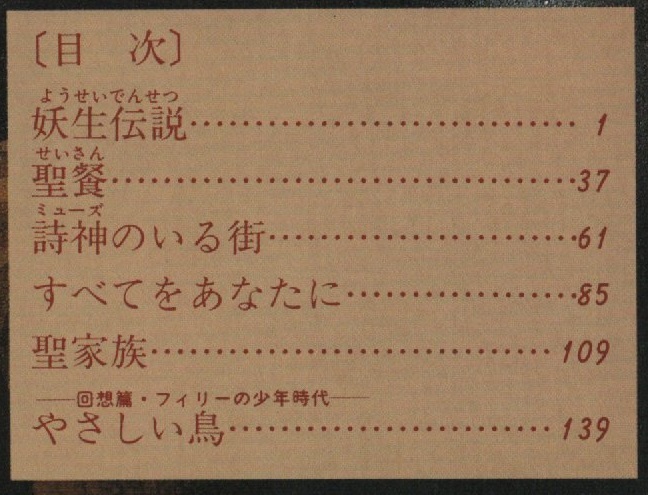 〔目 次〕
ようせいでんせつ
妖生伝説‥‥‥‥‥‥‥‥‥‥‥‥‥‥‥1
せいさん
聖餐‥‥‥‥‥‥‥‥‥‥‥‥‥‥‥‥‥‥37
ミューズ
詩神のいる街‥‥‥‥‥‥‥‥‥‥‥‥61
すべてをあなたに‥‥‥‥‥‥‥‥‥85
聖家族‥‥‥‥‥‥‥‥‥‥‥‥‥‥‥‥109
――回想篇・フィリーの少年時代――
やさしい鳥‥‥‥‥‥‥‥‥‥‥‥‥‥139